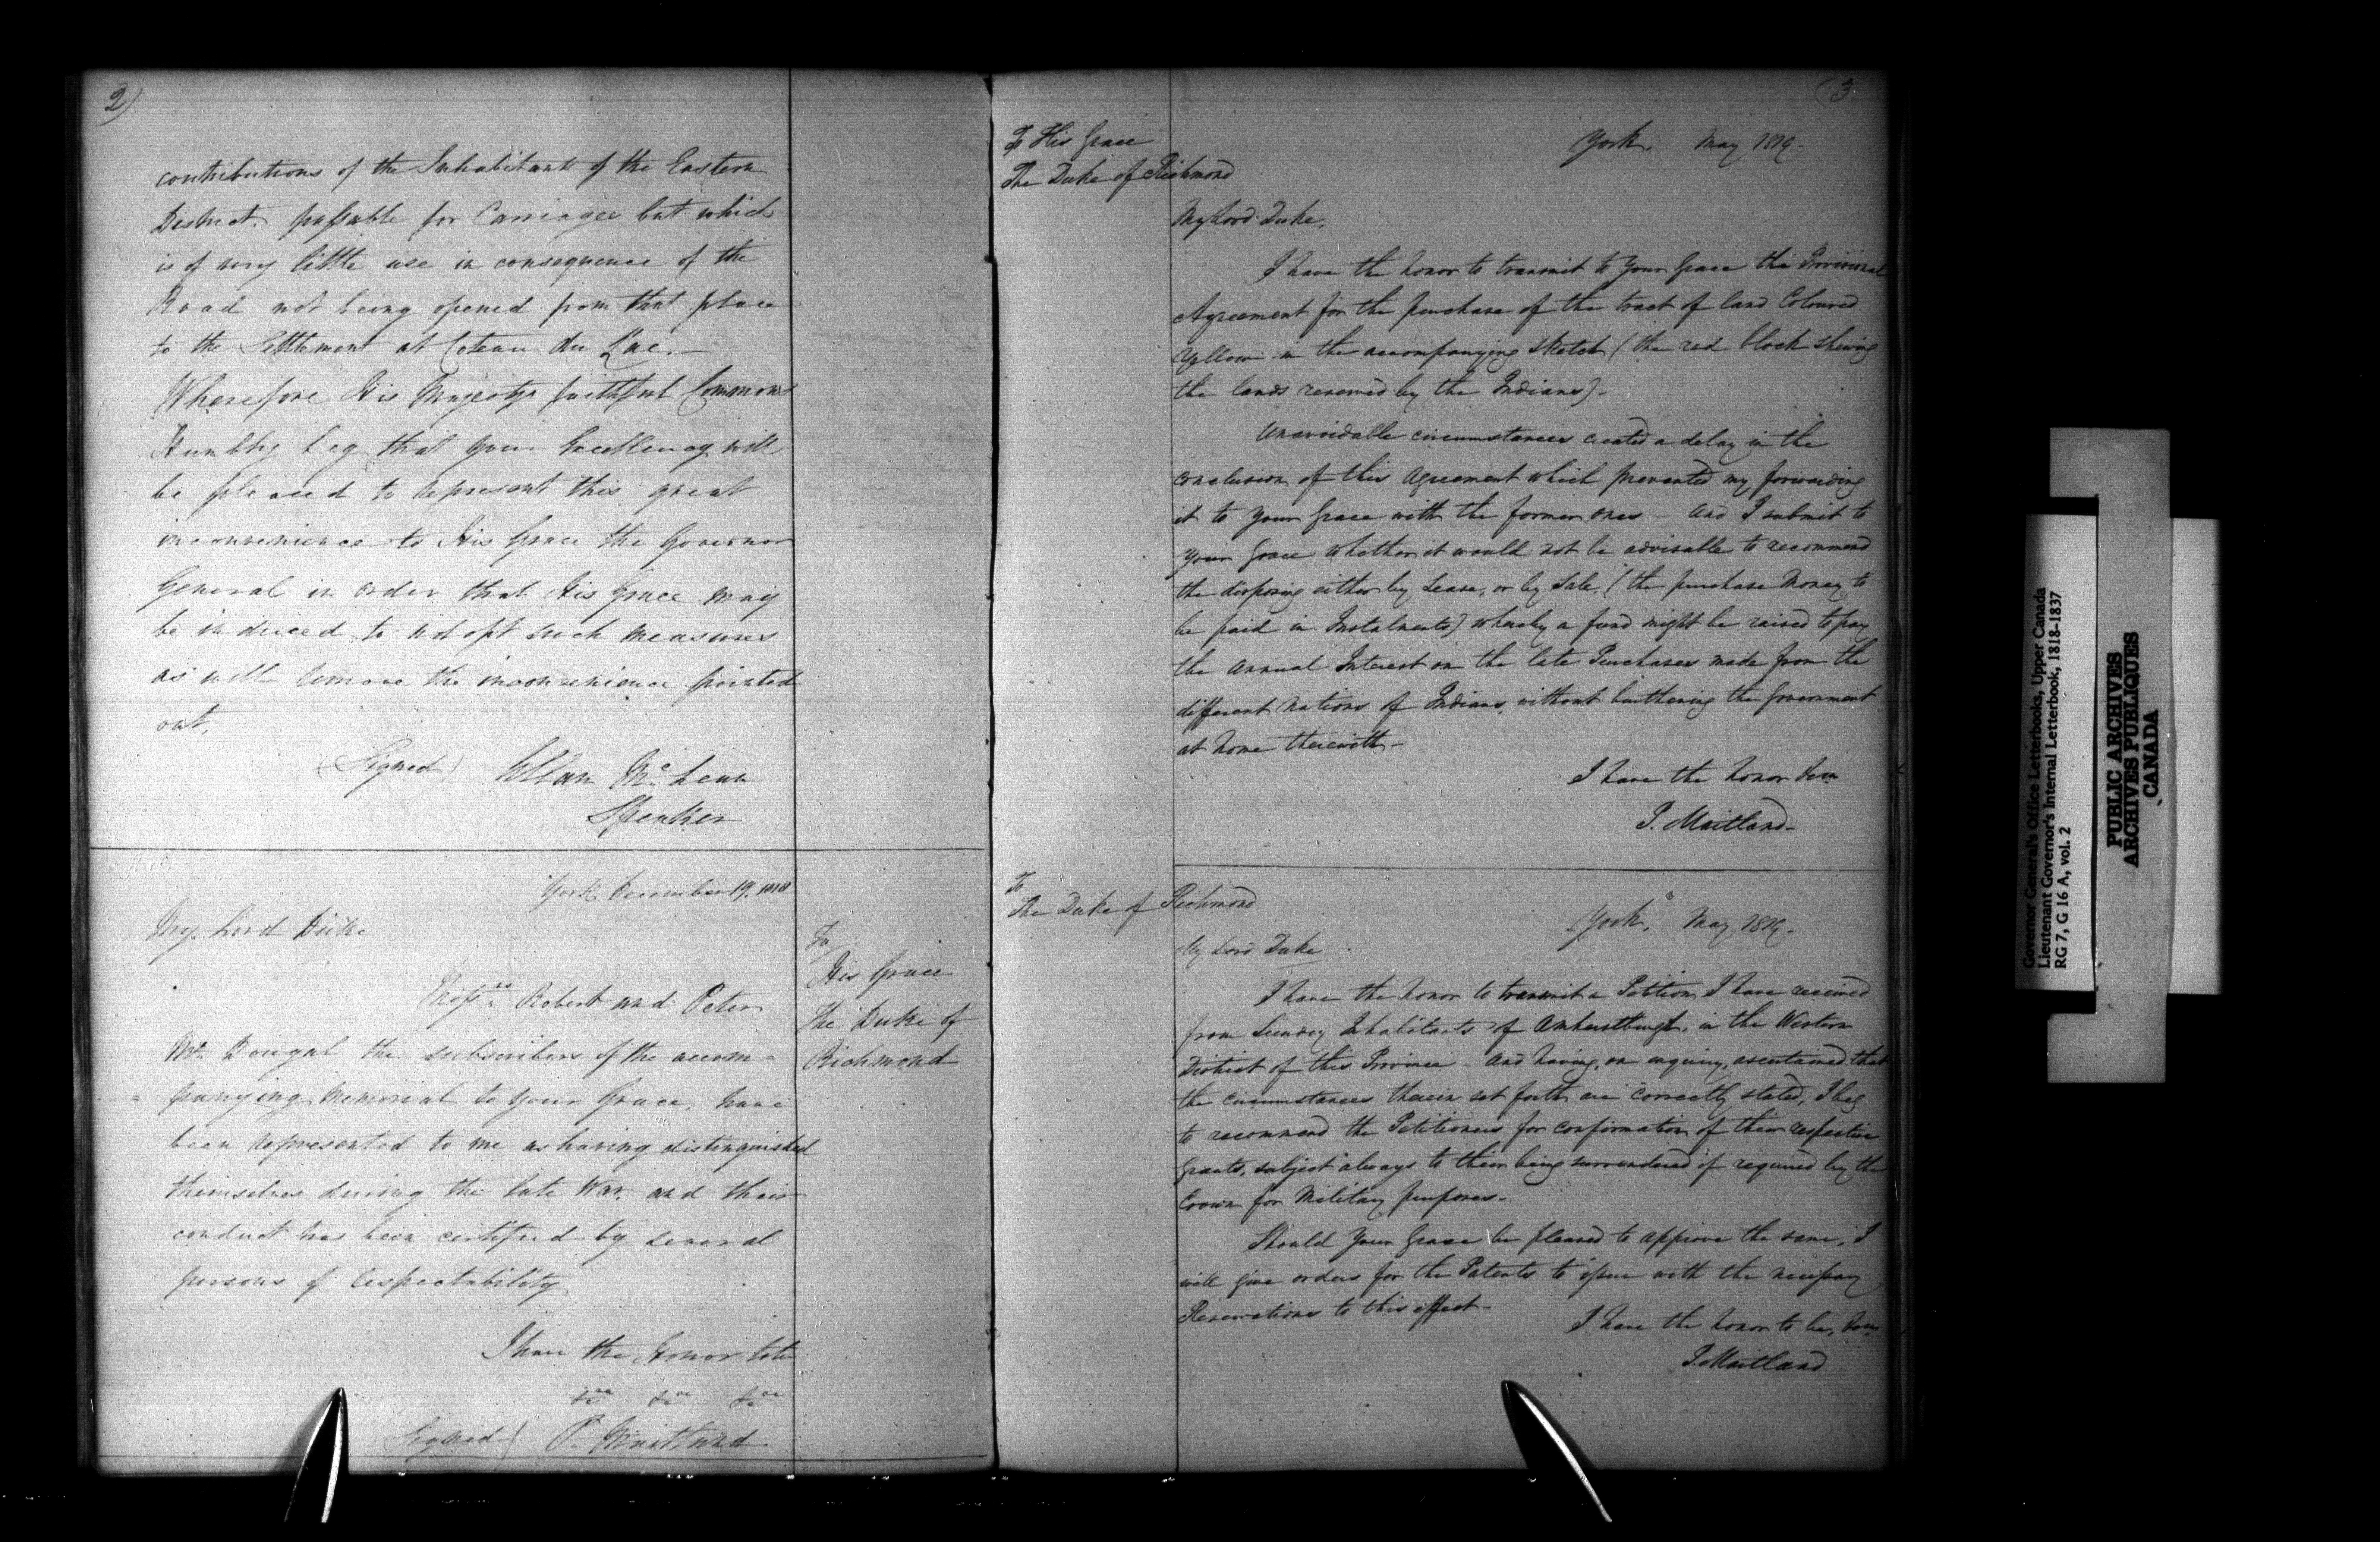 2)
contributions of the Inhabitants of the Eastern
District, passable for Carriages but which
is of very little use in consequence of the
Road not being opened from that place
to the Settlement at Coteau du Lac.—
Wherefore His Majestys faithful Commons
Humbly beg that your Excellency will
be pleased to represent this great
inconvenience to His Grace the Governor
General in order that His Grace may
be induced to adopt such measures
as will remove the inconvenience pointed
out.
(Signed) Allan McLean
Speaker
York December 19, 1818
My Lord Duke
To
His Grace
The Duke of
Richmond
Robert and Peter
Mc Dougal the subscribers of the accom=
=panying memorial to Your Grace, have
been represented to me as having distinguished
themselves during the late War, and their
conduct has been certified by several
persons of respectability
I have the Honor to be
&ca &ca &ca
(Signed) P. Maitland
(3
To His Grace
The Duke of Richmond
York, May 1819-
My Lord Duke,
I have the honor to transmit to Your Grace the Provisional
Agreement for the purchase of the tract of land Coloured
Yellow in the accompanying sketch (the red block shewing
the lands reserved by the Indians)-
Unavoidable circumstances created a delay in the
conclusion of this Agreement which prevented my forwarding
it to Your Grace with the former ones - And I submit to
Your Grace whether it would not be advisable to recommend
the disposing either by Lease, or by Sale, (the purchase Money to
be paid in Instalments) whereby a fund might be raised to pay
the annual Interest on the late Purchases made from the
different Nations of Indians, without burthening the Government
at home therewith-
I have the honor &ca
P. Maitland-
To
The Duke of Richmond
York, May 1819-
My Lord Duke
I have the honor to transmit a Petition I have received
from Sundry Inhabitants of Amherstburgh, in the Western
District of this Province - And having, on enquiry, ascertained that
the circumstances therein set forth are correctly stated, I beg
to recommend the Petitioners for confirmation of their respective
Grants, subject always to their being surrendered if required by the
Crown for Military purposes-
Should Your Grace be pleased to approve the same, I
will give orders for the Patents to issue with the necessary
Reservations to this effect-
I have the honor to be, &ca
P. Maitland
Governor General's Office Letterbooks, Upper Canada
Lieutenant Governor's Internal Letterbook, 1818-1837
RG 7, G 16 A, vol. 2
PUBLIC ARCHIVES
ARCHIVES PUBLIQUES
CANADA